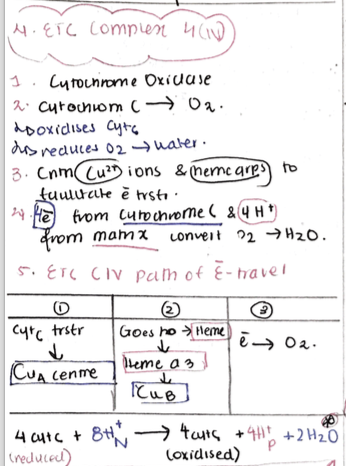 4. ETC Complex 4 (IV)
1. Cytochrome Oxidase
2. cytochrom C → O2.
↳ oxidises cytc
↳ reduces O2 → water.
3. Cntn Cu²⁺ ions & heme grps to
facilitate ē trstr.
4. 4ē from cytochrome C & 4H⁺
from matrix convert O2 → H2O.
5. ETC CIV path of ē-travel
① ② ③
cytc trstr
↓
CuA centre
Goes to → Heme
↓
Heme a3
↓
CuB
ē → O2.
4 cytc + 8H⁺N → 4cytc + 4H⁺p + 2H2O
(reduced) (oxidised)